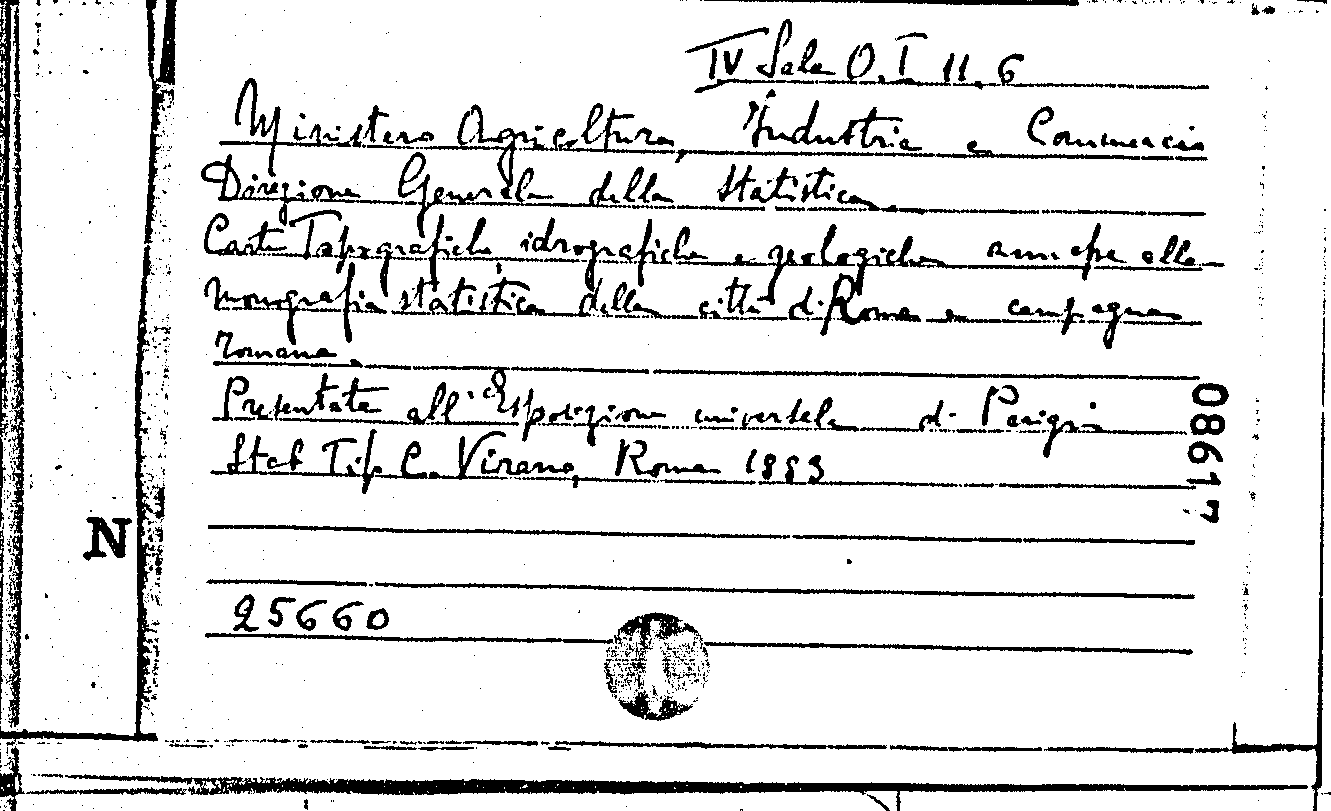 IV Sala O.I 11.6
Ministero Agricoltura, Industria e Commercio
Direzione Generale della Statistica
Carte Topografiche, idrografiche e geologiche annesse alla
monografia statistica della città di Roma e campagna
romana.
Presentata all'Esposizione universale di Parigi
Stab Tip C. Virano, Roma 1883
N
25660
08617